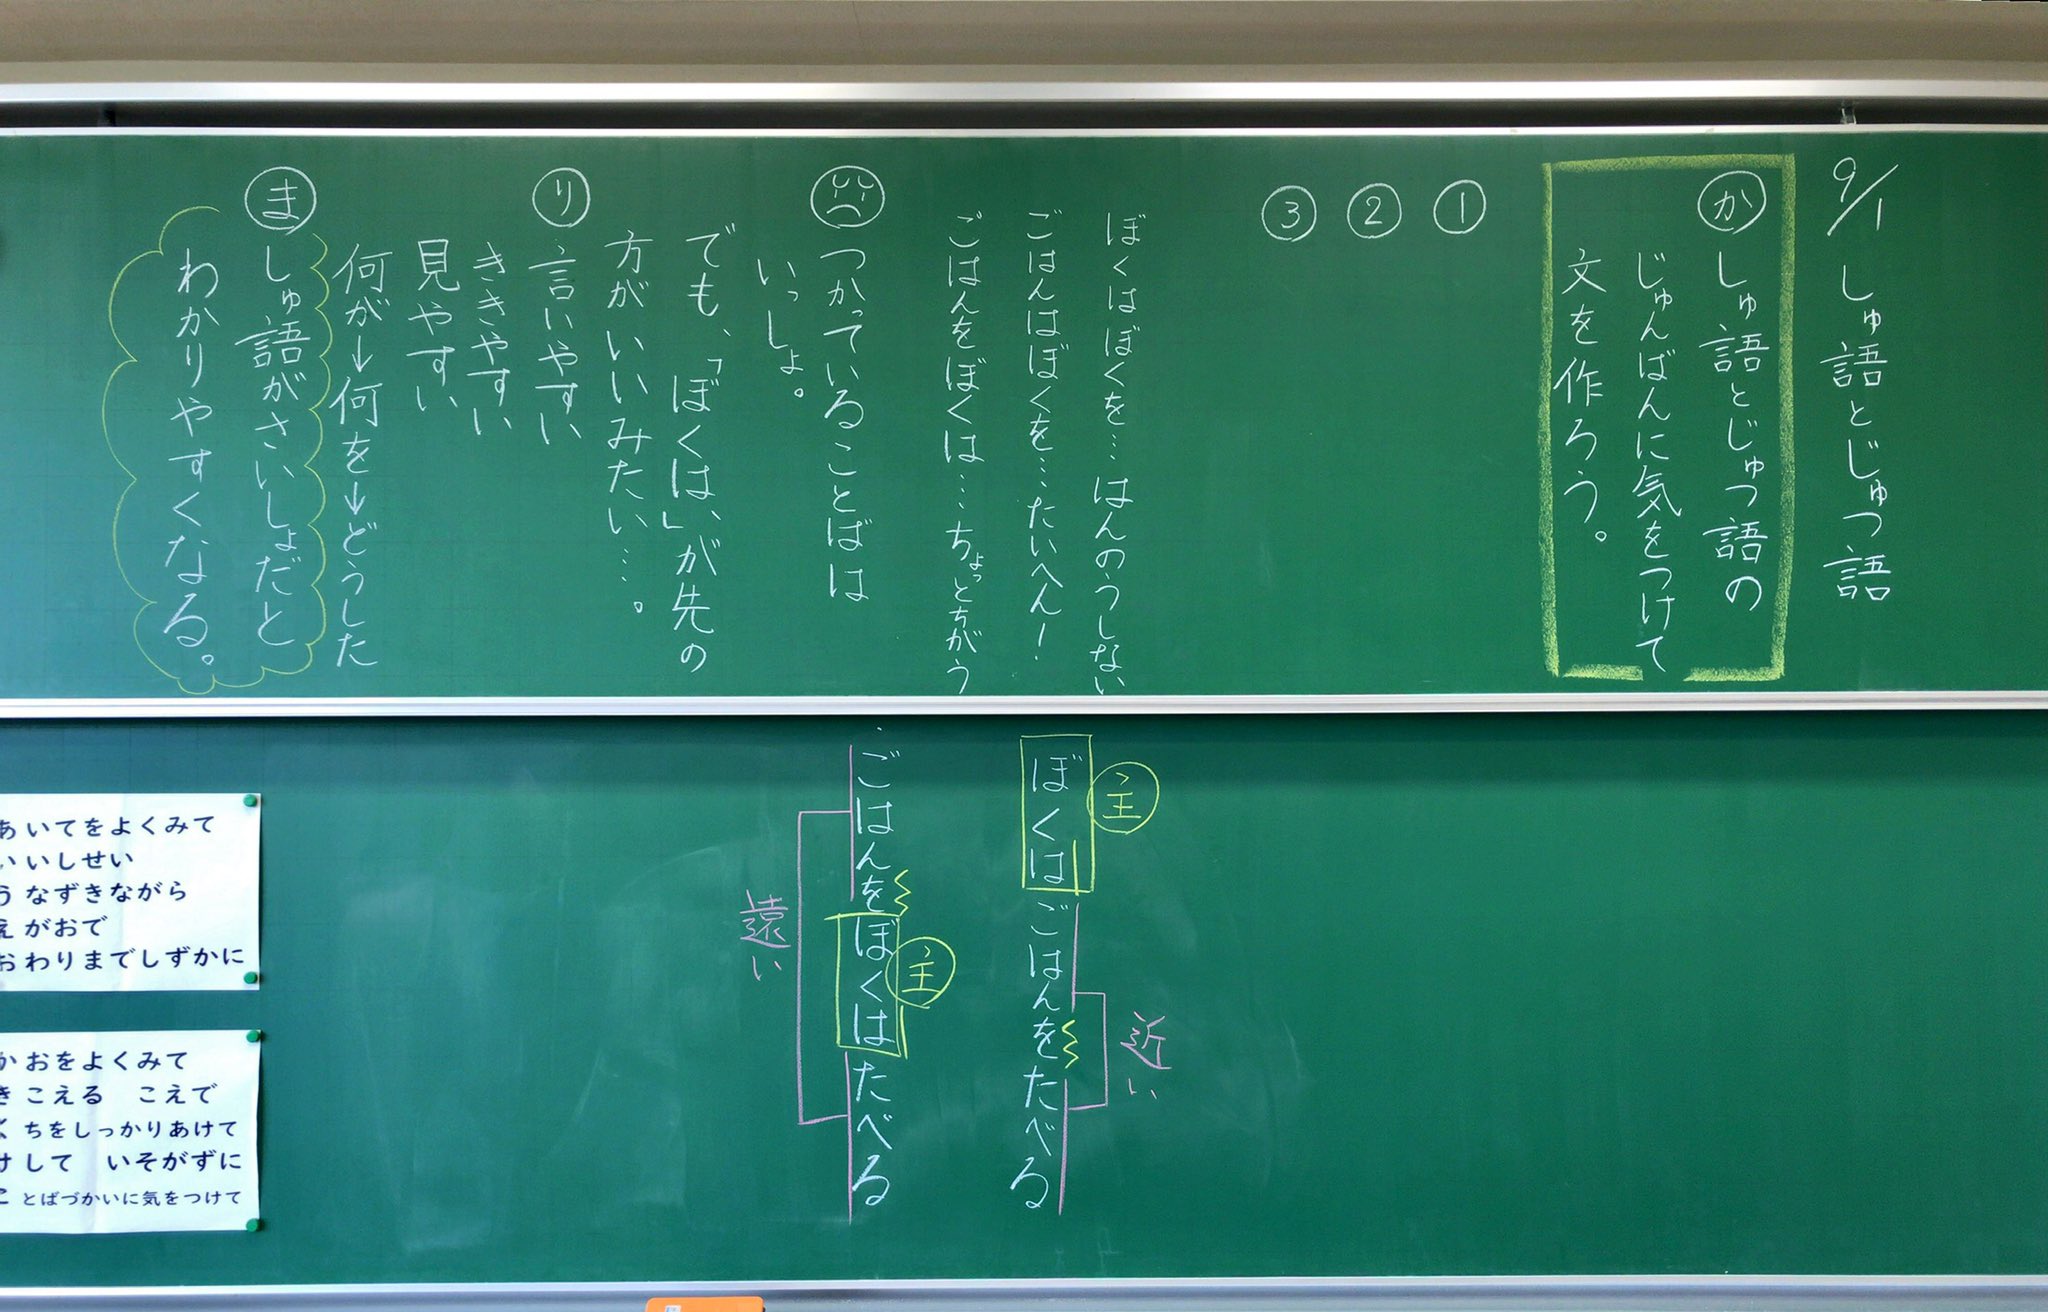 9/1 しゅ語とじゅつ語
か しゅ語とじゅつ語の
じゅんばんに気をつけて
文を作ろう。
①
②
③
ぼくはぼくを…はんのうしない
ごはんはぼくを…たいへん!
ごはんをぼくは…ちょっとちがう
つかっていることばは
いっしょ。
でも、「ぼくは、」が先の
方がいいみたい…。
り 言いやすい
ききやすい
見やすい
何が→何を→どうした
ま しゅ語がさいしょだと
わかりやすくなる。
主
ぼくはごはんをたべる
近い
主
ごはんをぼくはたべる
遠い
あいてをよくみて
いいしせい
うなずきながら
えがおで
おわりまでしずかに
かおをよくみて
きこえる こえで
くちをしっかりあけて
けして いそがずに
ことばづかいに気をつけて